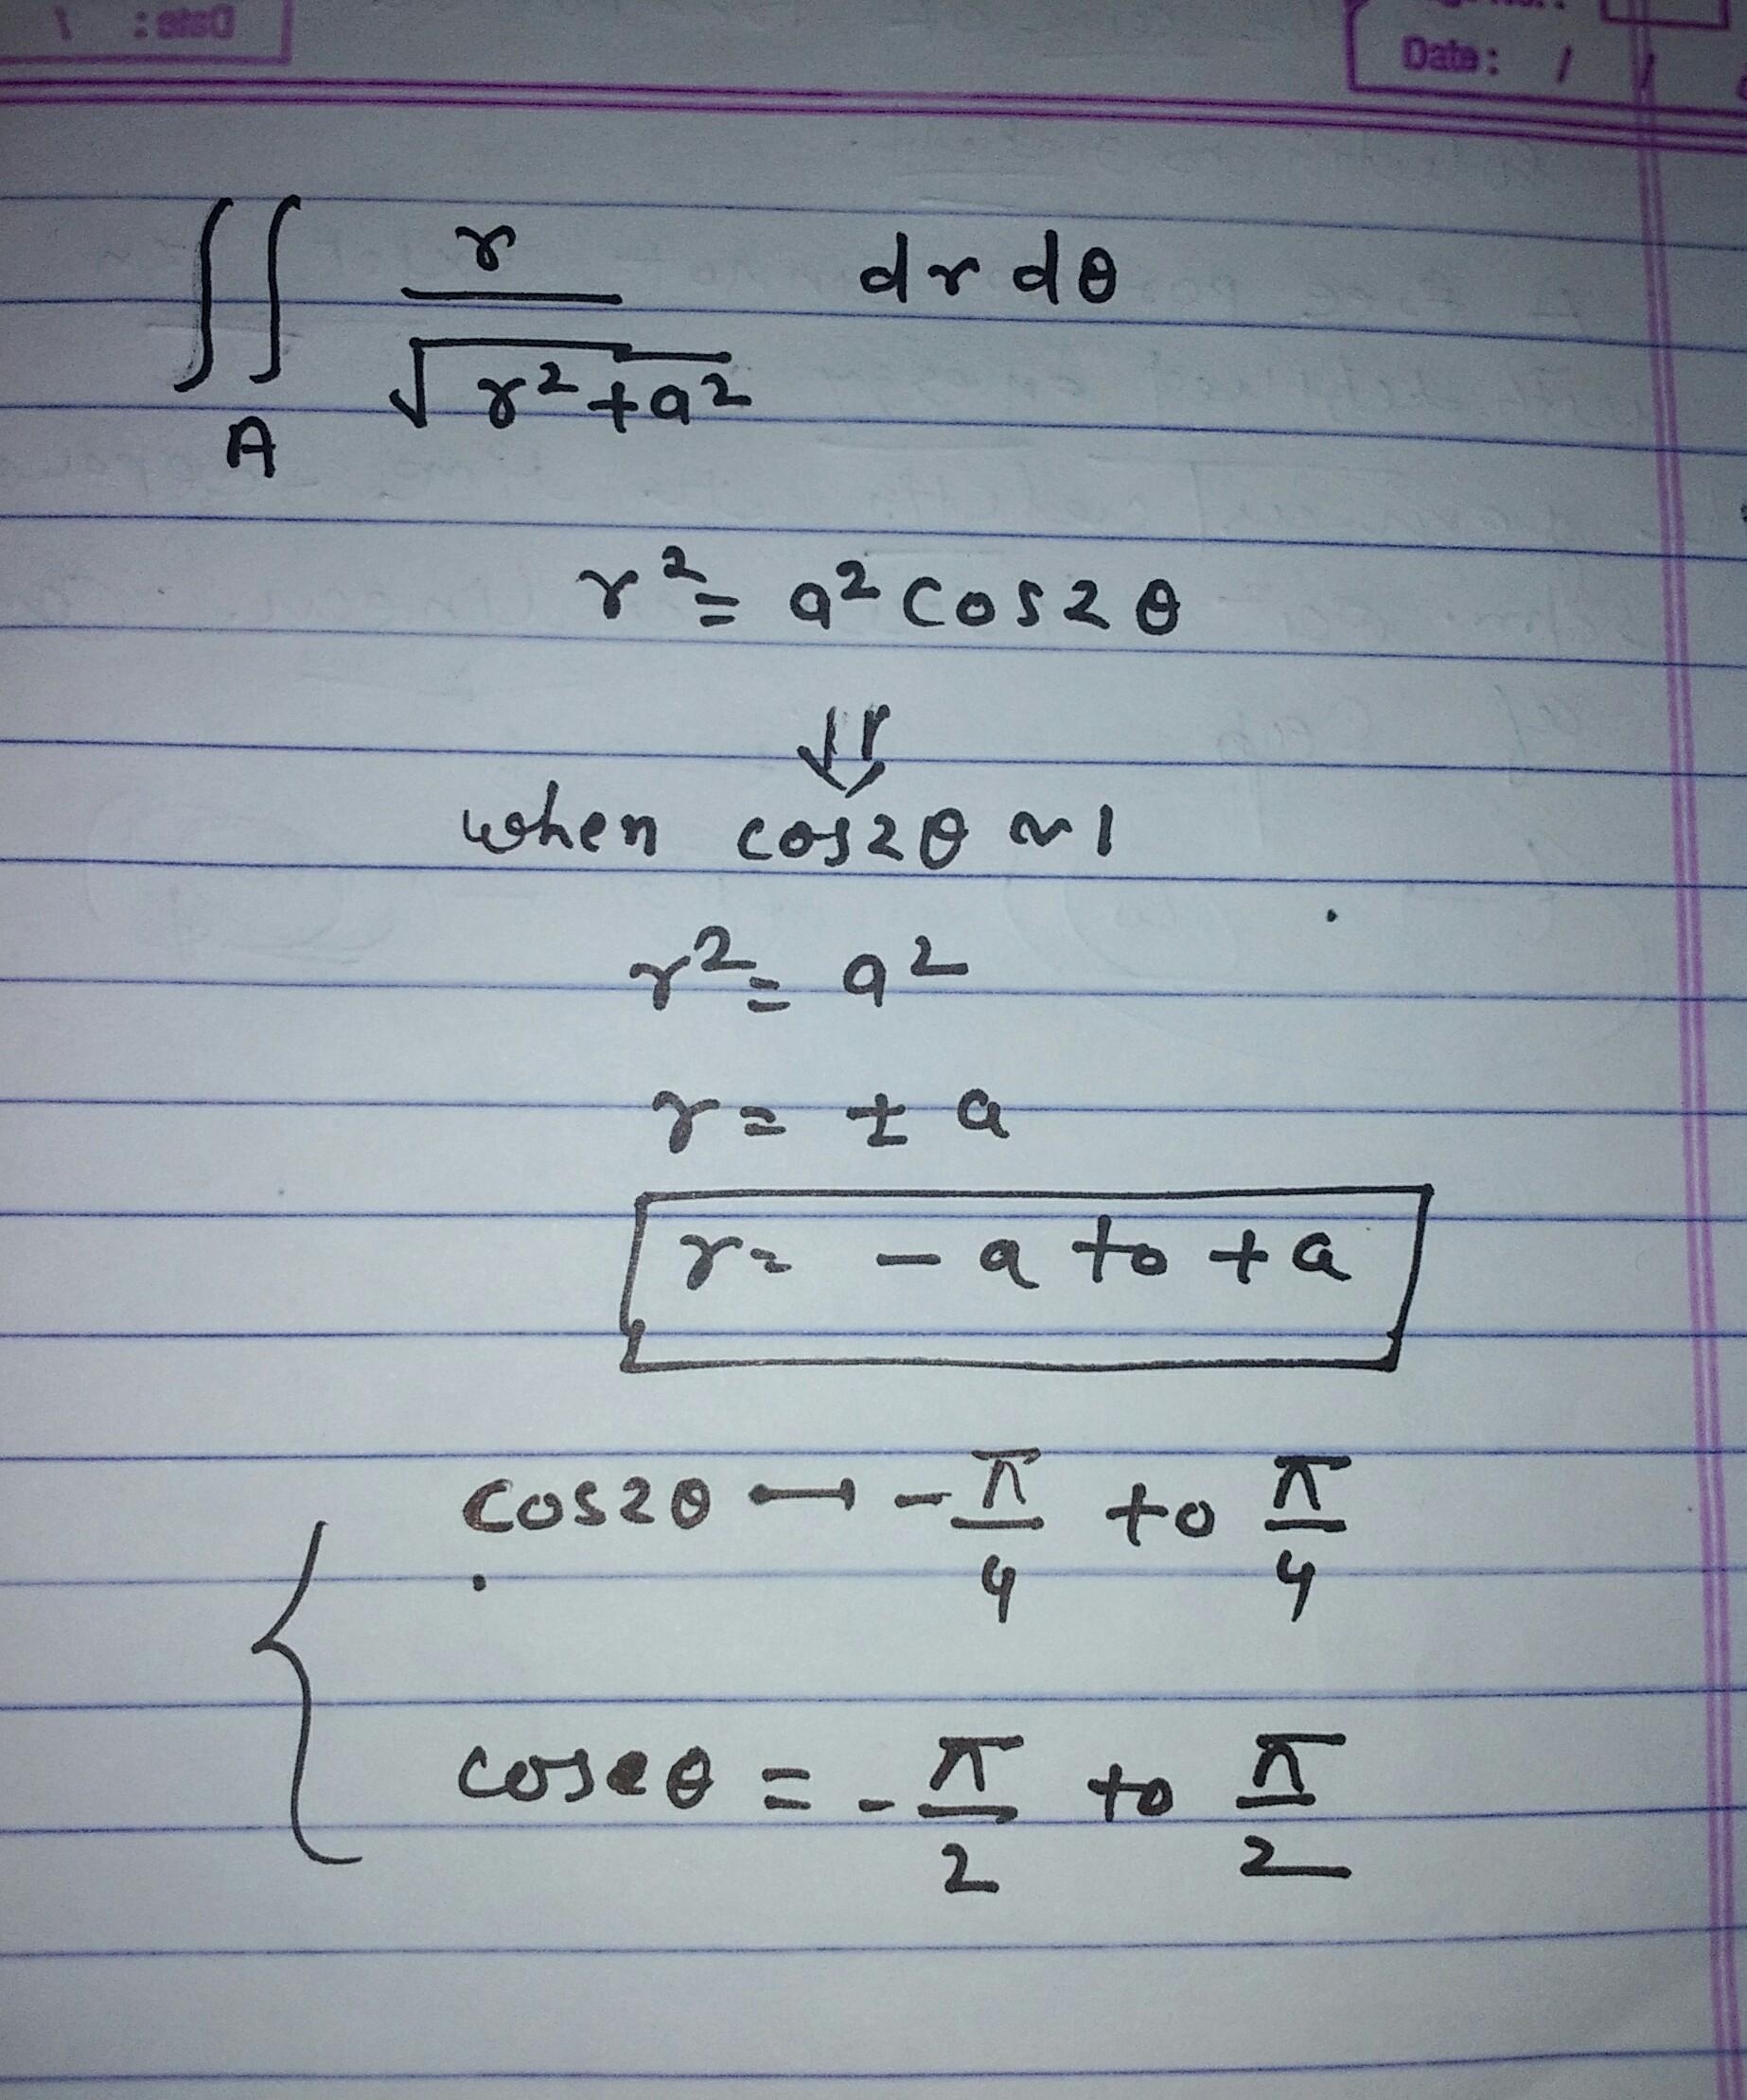 Date: /
Date: / /
∫∫_A r / √(r² + a²) dr dθ
r² = a² cos2θ
⇓
when cos2θ ~ 1
r² = a²
r = ± a
r = - a to + a
cos2θ → -π/4 to π/4
cos2θ = -π/2 to π/2